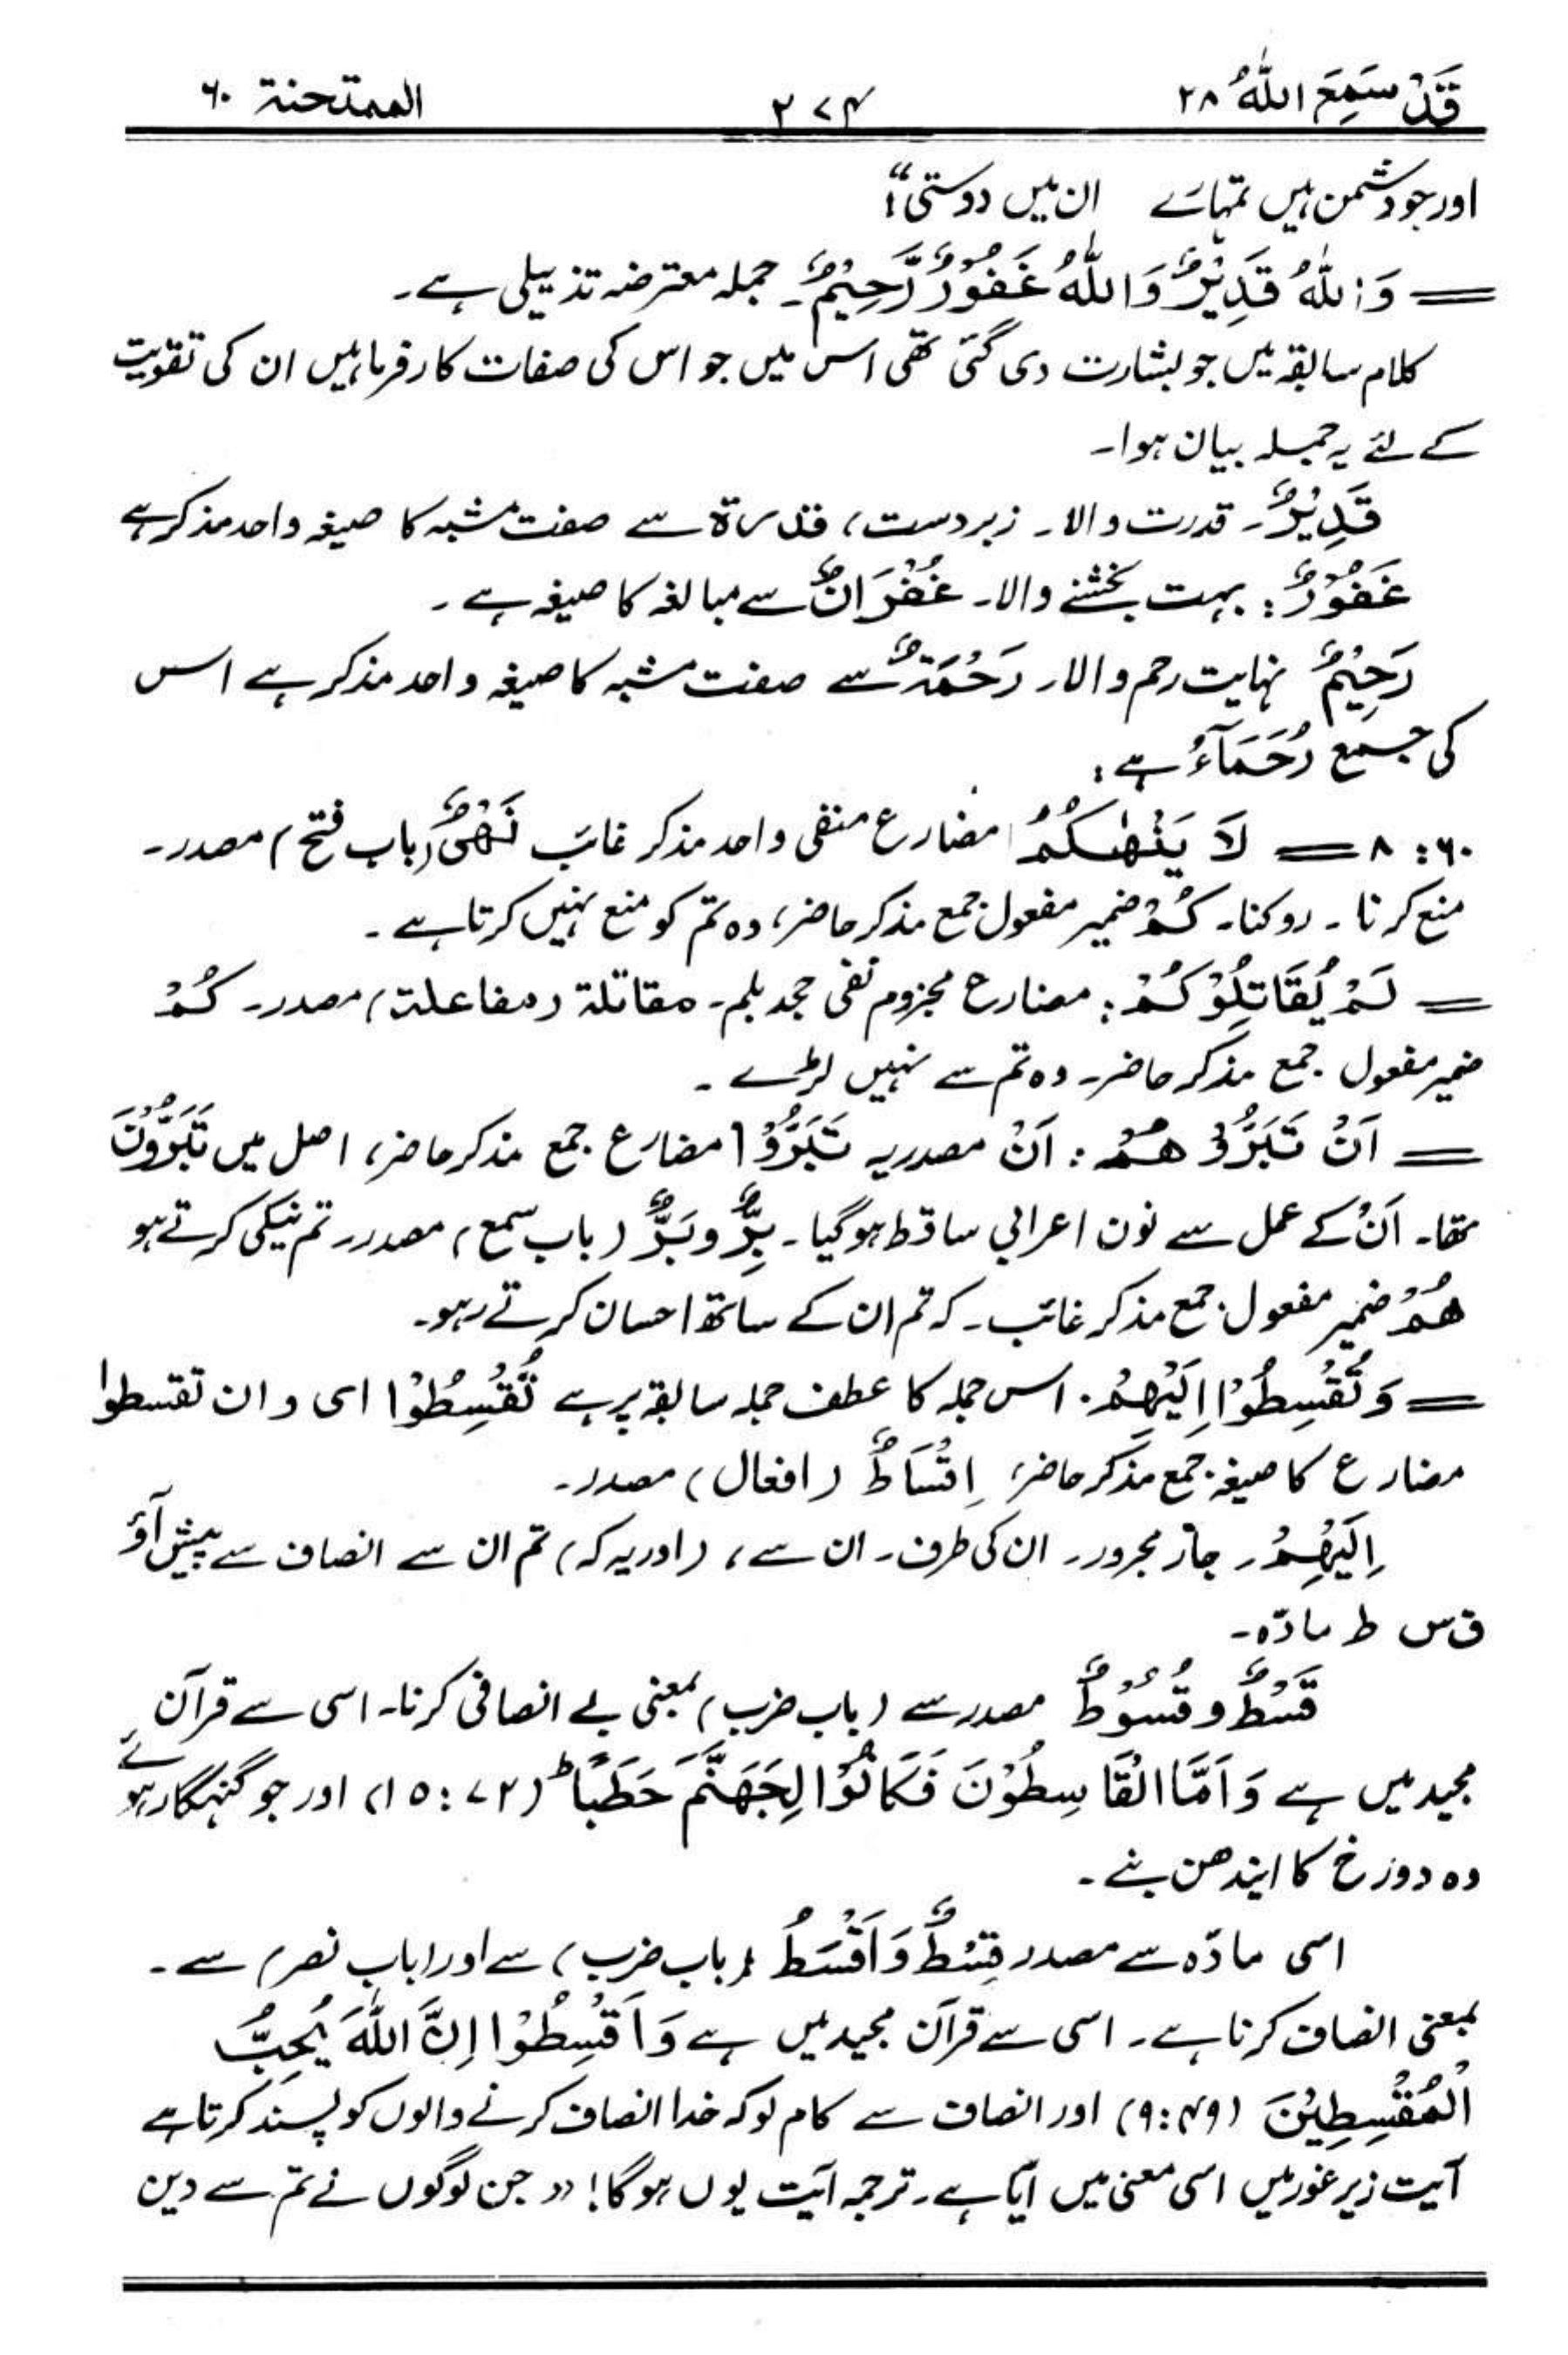 قَدْ سَمِعَ اللّٰهُ ۲۸ ۲۷۴ الممتحنة ۶۰
اور جو دشمن ہیں تمہارے ان میں دوستی"؛
= وَاللّٰهُ قَدِيْرٌ وَاللّٰهُ غَفُوْرٌ رَّحِيْمٌ۔ جملہ معترضہ تذییلی ہے۔
کلام سابقہ میں جو بشارت دی گئی تھی اس میں جو اس کی صفات کارفرما ہیں ان کی تقویت
کے لئے یہ جملہ بیان ہوا۔
قَدِيْرٌ۔ قدرت والا۔ زبردست، قدرة سے صفت مشبہ کا صیغہ واحد مذکر ہے
غَفُوْرٌ: بہت بخشنے والا۔ غُفْرَانٌ سے مبالغہ کا صیغہ ہے۔
رَحِيْمٌ نہایت رحم والا۔ رَحْمَةٌ سے صفت مشبہ کا صیغہ واحد مذکر ہے اس
کی جمع رُحَمَآءُ ہے؛
۶۰: ۸ = لَا يَنْهٰىكُمُ مضارع منفی واحد مذکر غائب نَهْىٌ (باب فتح) مصدر۔
منع کرنا۔ روکنا۔ كُمْ ضمیر مفعول جمع مذکر حاضر، وہ تم کو منع نہیں کرتا ہے۔
= لَمْ يُقَاتِلُوْكُمْ: مضارع مجزوم نفی جحد بلم۔ مقاتلة (مفاعلة) مصدر۔ كُمْ
ضمیر مفعول جمع مذکر حاضر۔ وہ تم سے نہیں لڑے۔
= اَنْ تَبَرُّوْهُمْ: اَنْ مصدریہ تَبَرُّوْا مضارع جمع مذکر حاضر، اصل میں تَبَرُّوْنَ
تھا۔ اَنْ کے عمل سے نون اعرابی ساقط ہو گیا۔ بِرٌّ و بَرٌّ (باب سمع) مصدر۔ تم نیکی کرتے ہو
هُمْ ضمیر مفعول جمع مذکر غائب۔ کہ تم ان کے ساتھ احسان کرتے رہو۔
= وَتُقْسِطُوْا اِلَيْهِمْ۔ اس جملہ کا عطف جملہ سابقہ پر ہے تُقْسِطُوْا ای و ان تقسطوا
مضارع کا صیغہ جمع مذکر حاضر، اِقْسَاطٌ (افعال) مصدر۔
اِلَيْهِمْ۔ جار مجرور۔ ان کی طرف۔ ان سے، (اور یہ کہ) تم ان سے انصاف سے پیش آؤ
ق س ط مادّہ۔
قَسْطٌ و قُسُوْطٌ مصدر سے (باب ضرب) بمعنی بے انصافی کرنا۔ اسی سے قرآن
مجید میں ہے وَاَمَّا الْقَاسِطُوْنَ فَكَانُوْا لِجَهَنَّمَ حَطَبًا ط (۷۲: ۱۵) اور جو گنہگار ہوئے
وہ دوزخ کا ایندھن بنے۔
اسی مادّہ سے مصدر قِسْطٌ وَاَقْسَطُ (باب ضرب) سے اور (باب نصر) سے۔
بمعنی انصاف کرنا ہے۔ اسی سے قرآن مجید میں ہے وَاَقْسِطُوْا اِنَّ اللّٰهَ يُحِبُّ
الْمُقْسِطِيْنَ (۴۹: ۹) اور انصاف سے کام لو کہ خدا انصاف کرنے والوں کو پسند کرتا ہے
آیت زیر غور میں اسی معنی میں آیا ہے۔ ترجمہ آیت یوں ہوگا! "جن لوگوں نے تم سے دین